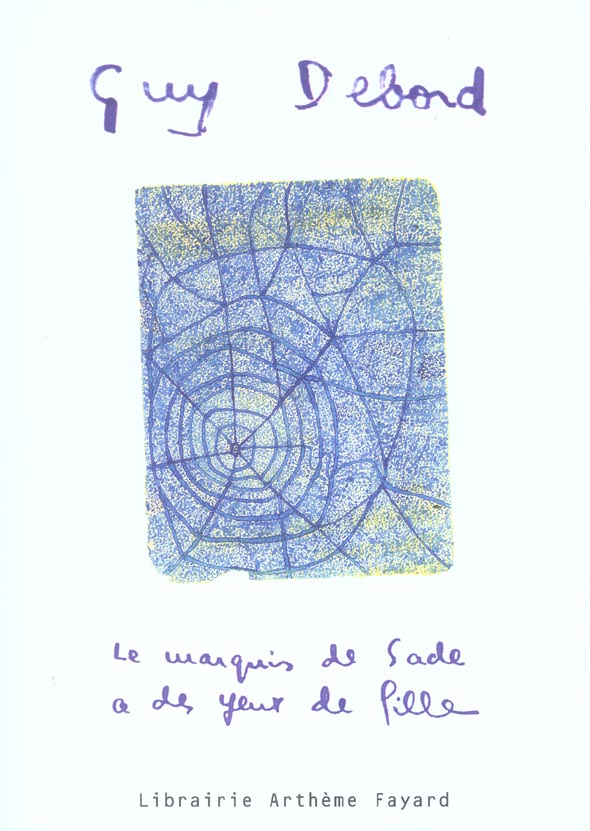 Guy Debord
Le marquis de Sade
a des yeux de fille
Librairie Arthème Fayard